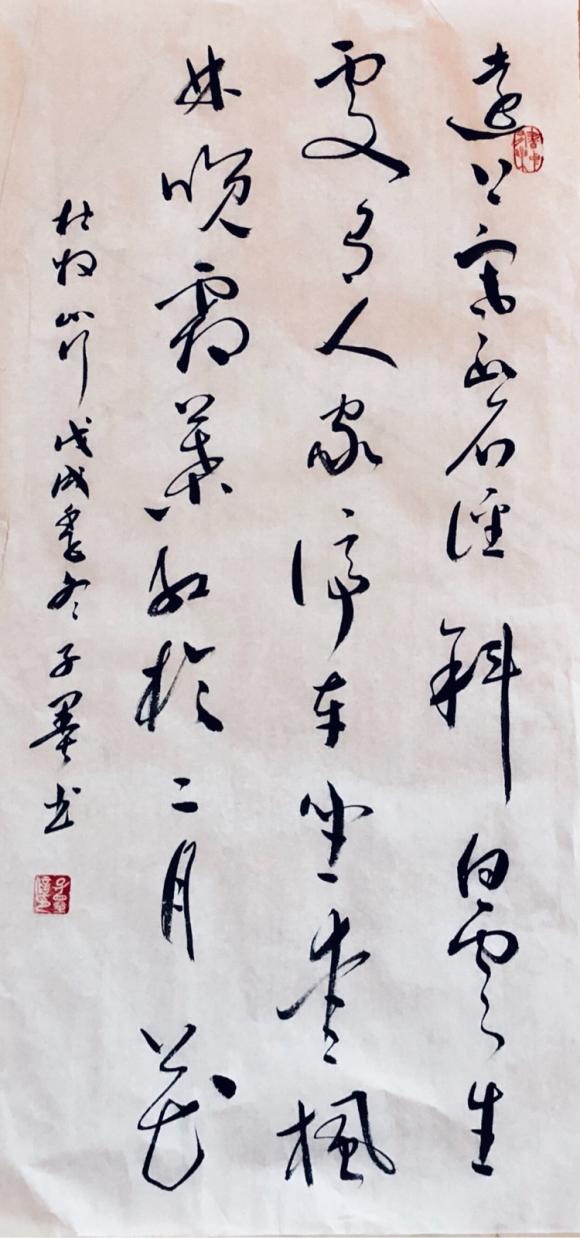 遠上寒山石徑斜白雲生
處有人家停车坐愛楓
林晚霜葉紅於二月花
杜牧山行 戊戌冬 子墨书